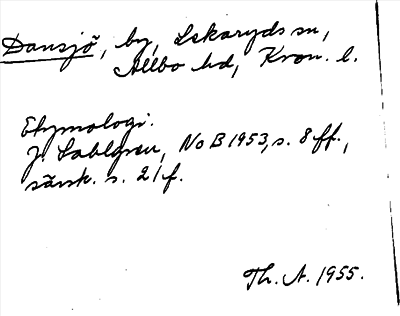 Dansjö, by, Lekaryds sn,
Allbo hd, Kron. l.
Etymologi:
J. Sahlgren, NoB 1953, s. 8 ff.,
särsk. s. 21 f.
Th. A. 1955.